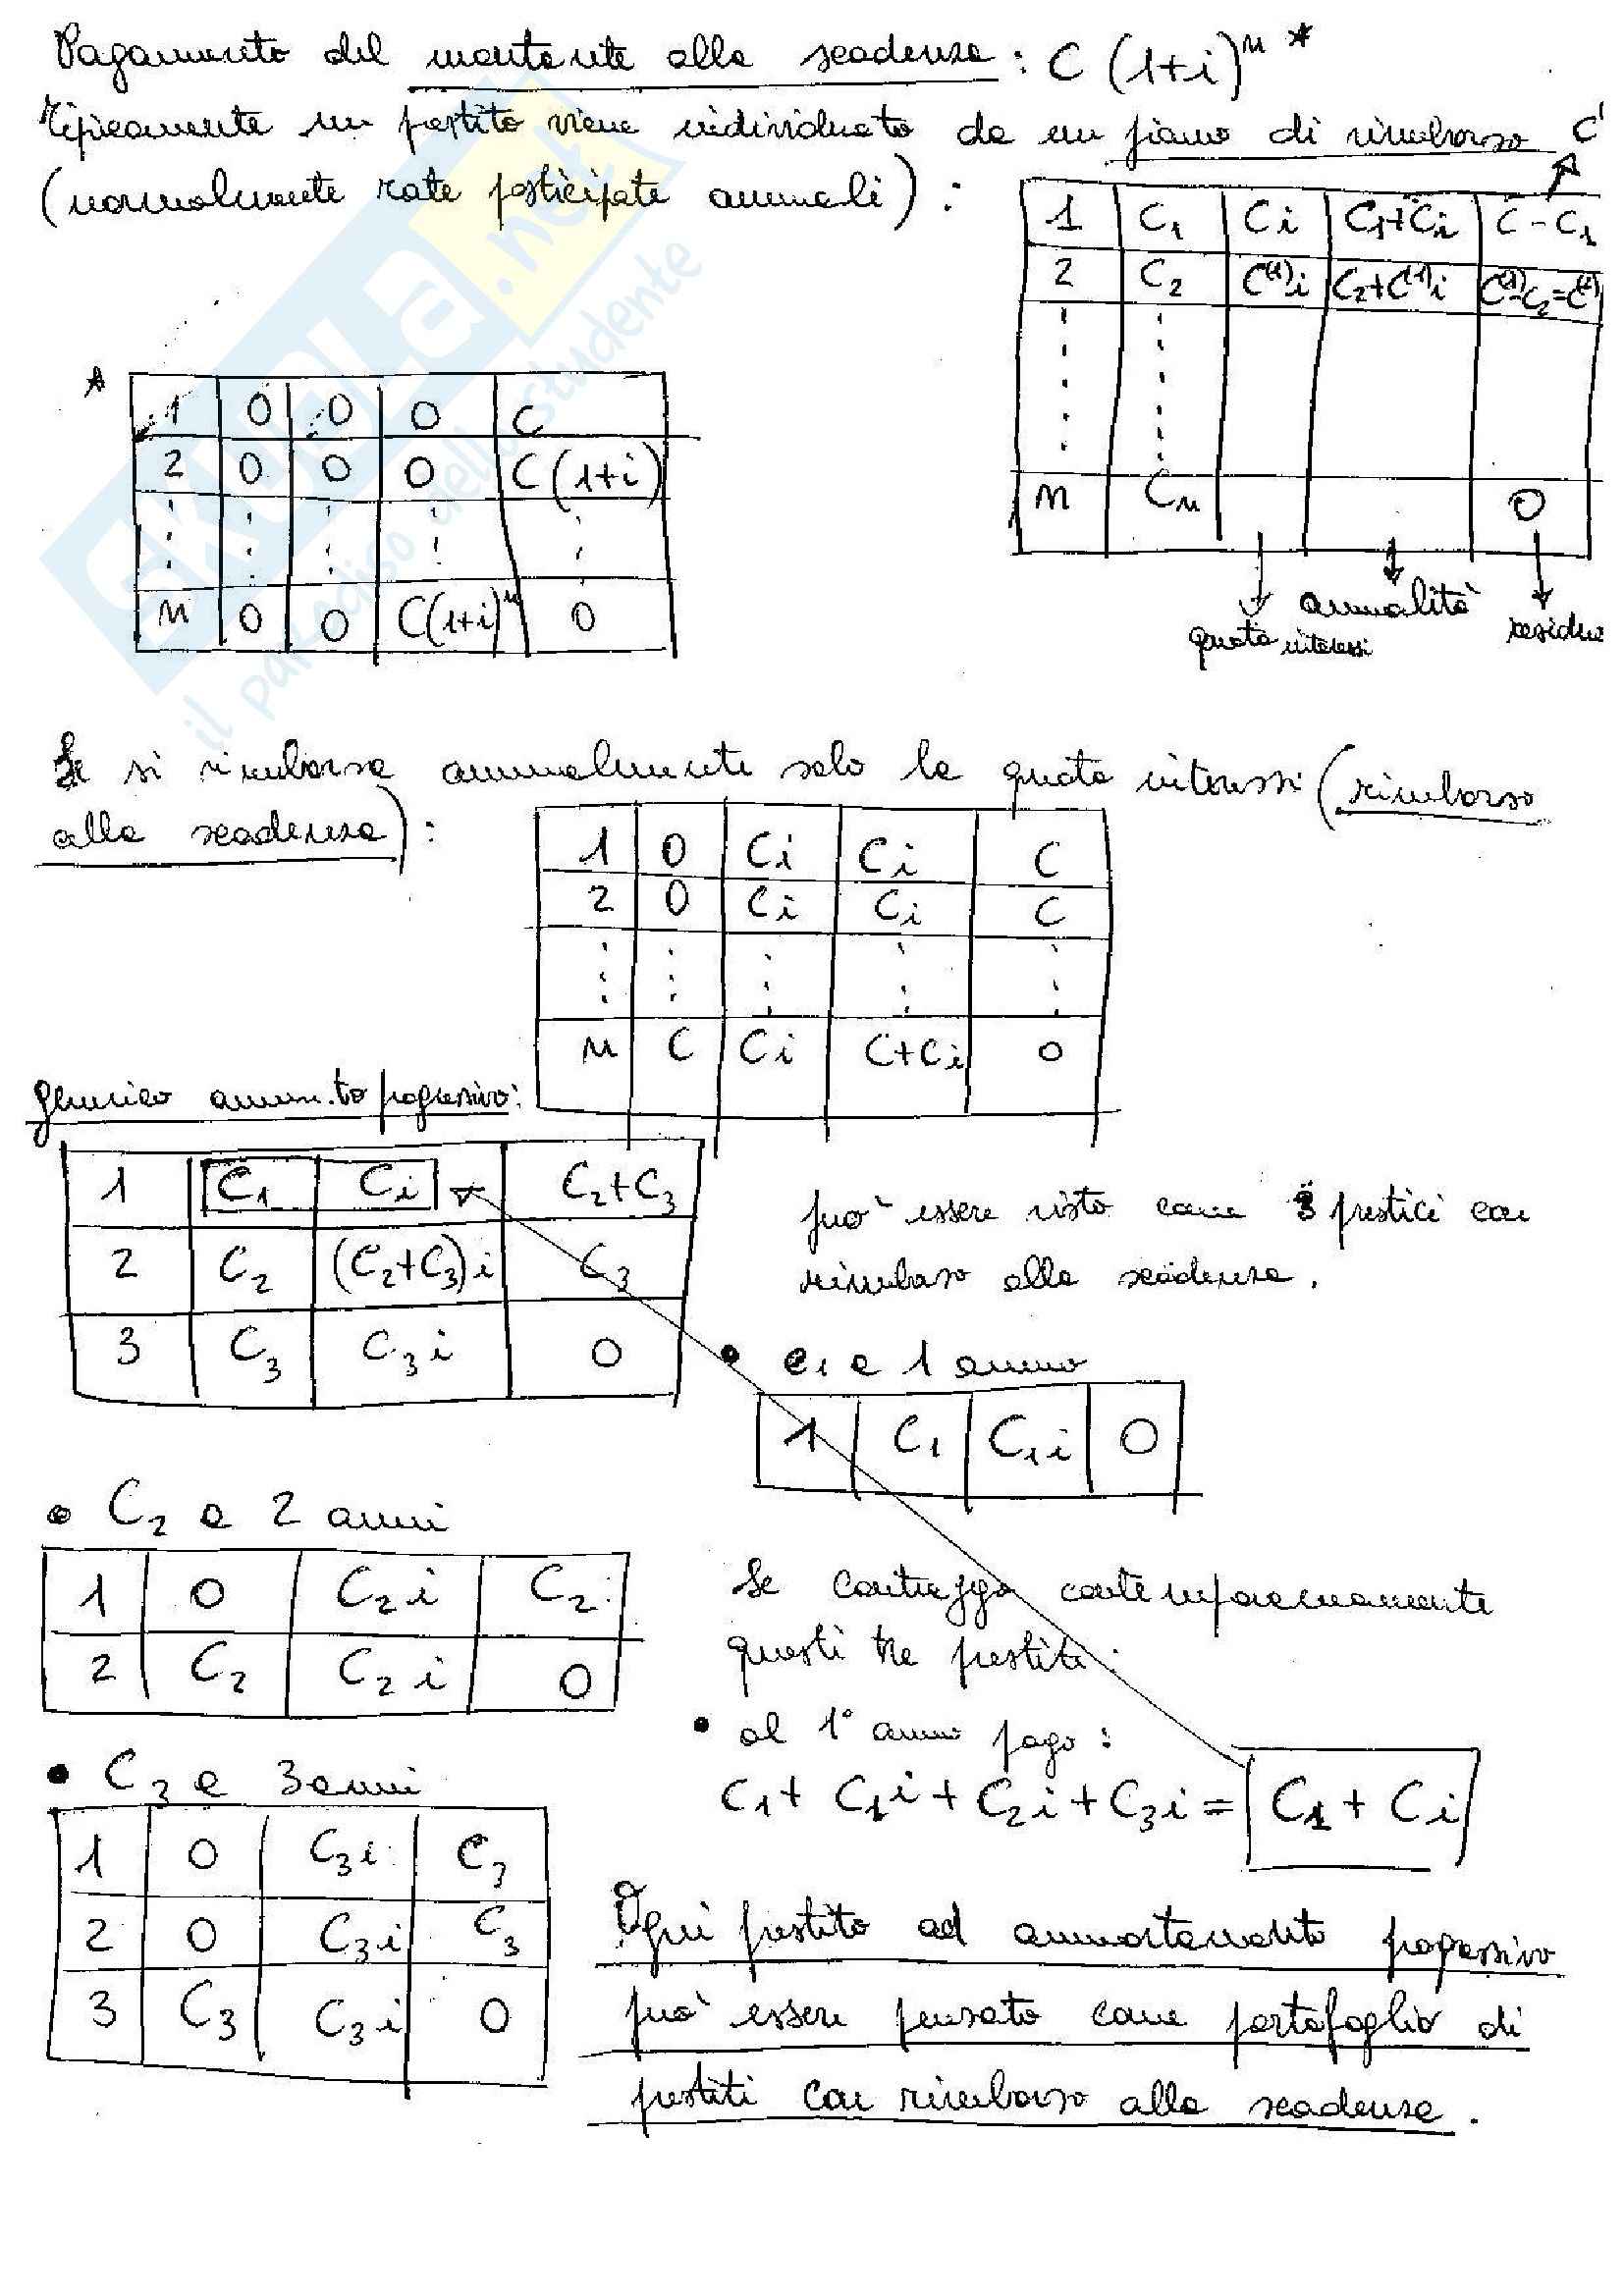 Pagamento del montante alla scadenza : C (1+i)^n *
Tipicamente un prestito viene individuato da un piano di rimborso C'
(normalmente rate posticipate annuali) :
1 | C₁ | Ci | C₁+Ci | C - C₁
2 | C₂ | C⁽¹⁾i | C₂+C⁽¹⁾i | C⁽¹⁾-C₂=C⁽²⁾
n | Cn | | | 0
quota interessi
annualità
residuo
*
1 | 0 | 0 | 0 | C
2 | 0 | 0 | 0 | C(1+i)
n | 0 | 0 | C(1+i)^n | 0
SKUOLA.net
il paradiso dello studente
Se si rimborsa annualmente solo la quota interessi (rimborso
alla scadenza) :
1 | 0 | Ci | Ci | C
2 | 0 | Ci | Ci | C
n | C | Ci | C+Ci | 0
generico amm.to progressivo:
1 | C₁ | Ci | C₂+C₃
2 | C₂ | (C₂+C₃)i | C₃
3 | C₃ | C₃i | 0
può essere visto come 3 prestiti con
rimborso alla scadenza.
• C₁ a 1 anno
1 | C₁ | C₁i | 0
• C₂ a 2 anni
1 | 0 | C₂i | C₂
2 | C₂ | C₂i | 0
Se contraggo contemporaneamente
questi tre prestiti :
• al 1° anno pago :
C₁+ C₁i + C₂i + C₃i = C₁ + Ci
• C₃ a 3 anni
1 | 0 | C₃i | C₃
2 | 0 | C₃i | C₃
3 | C₃ | C₃i | 0
Ogni prestito ad ammortamento progressivo
può essere pensato come portafoglio di
prestiti con rimborso alla scadenza.